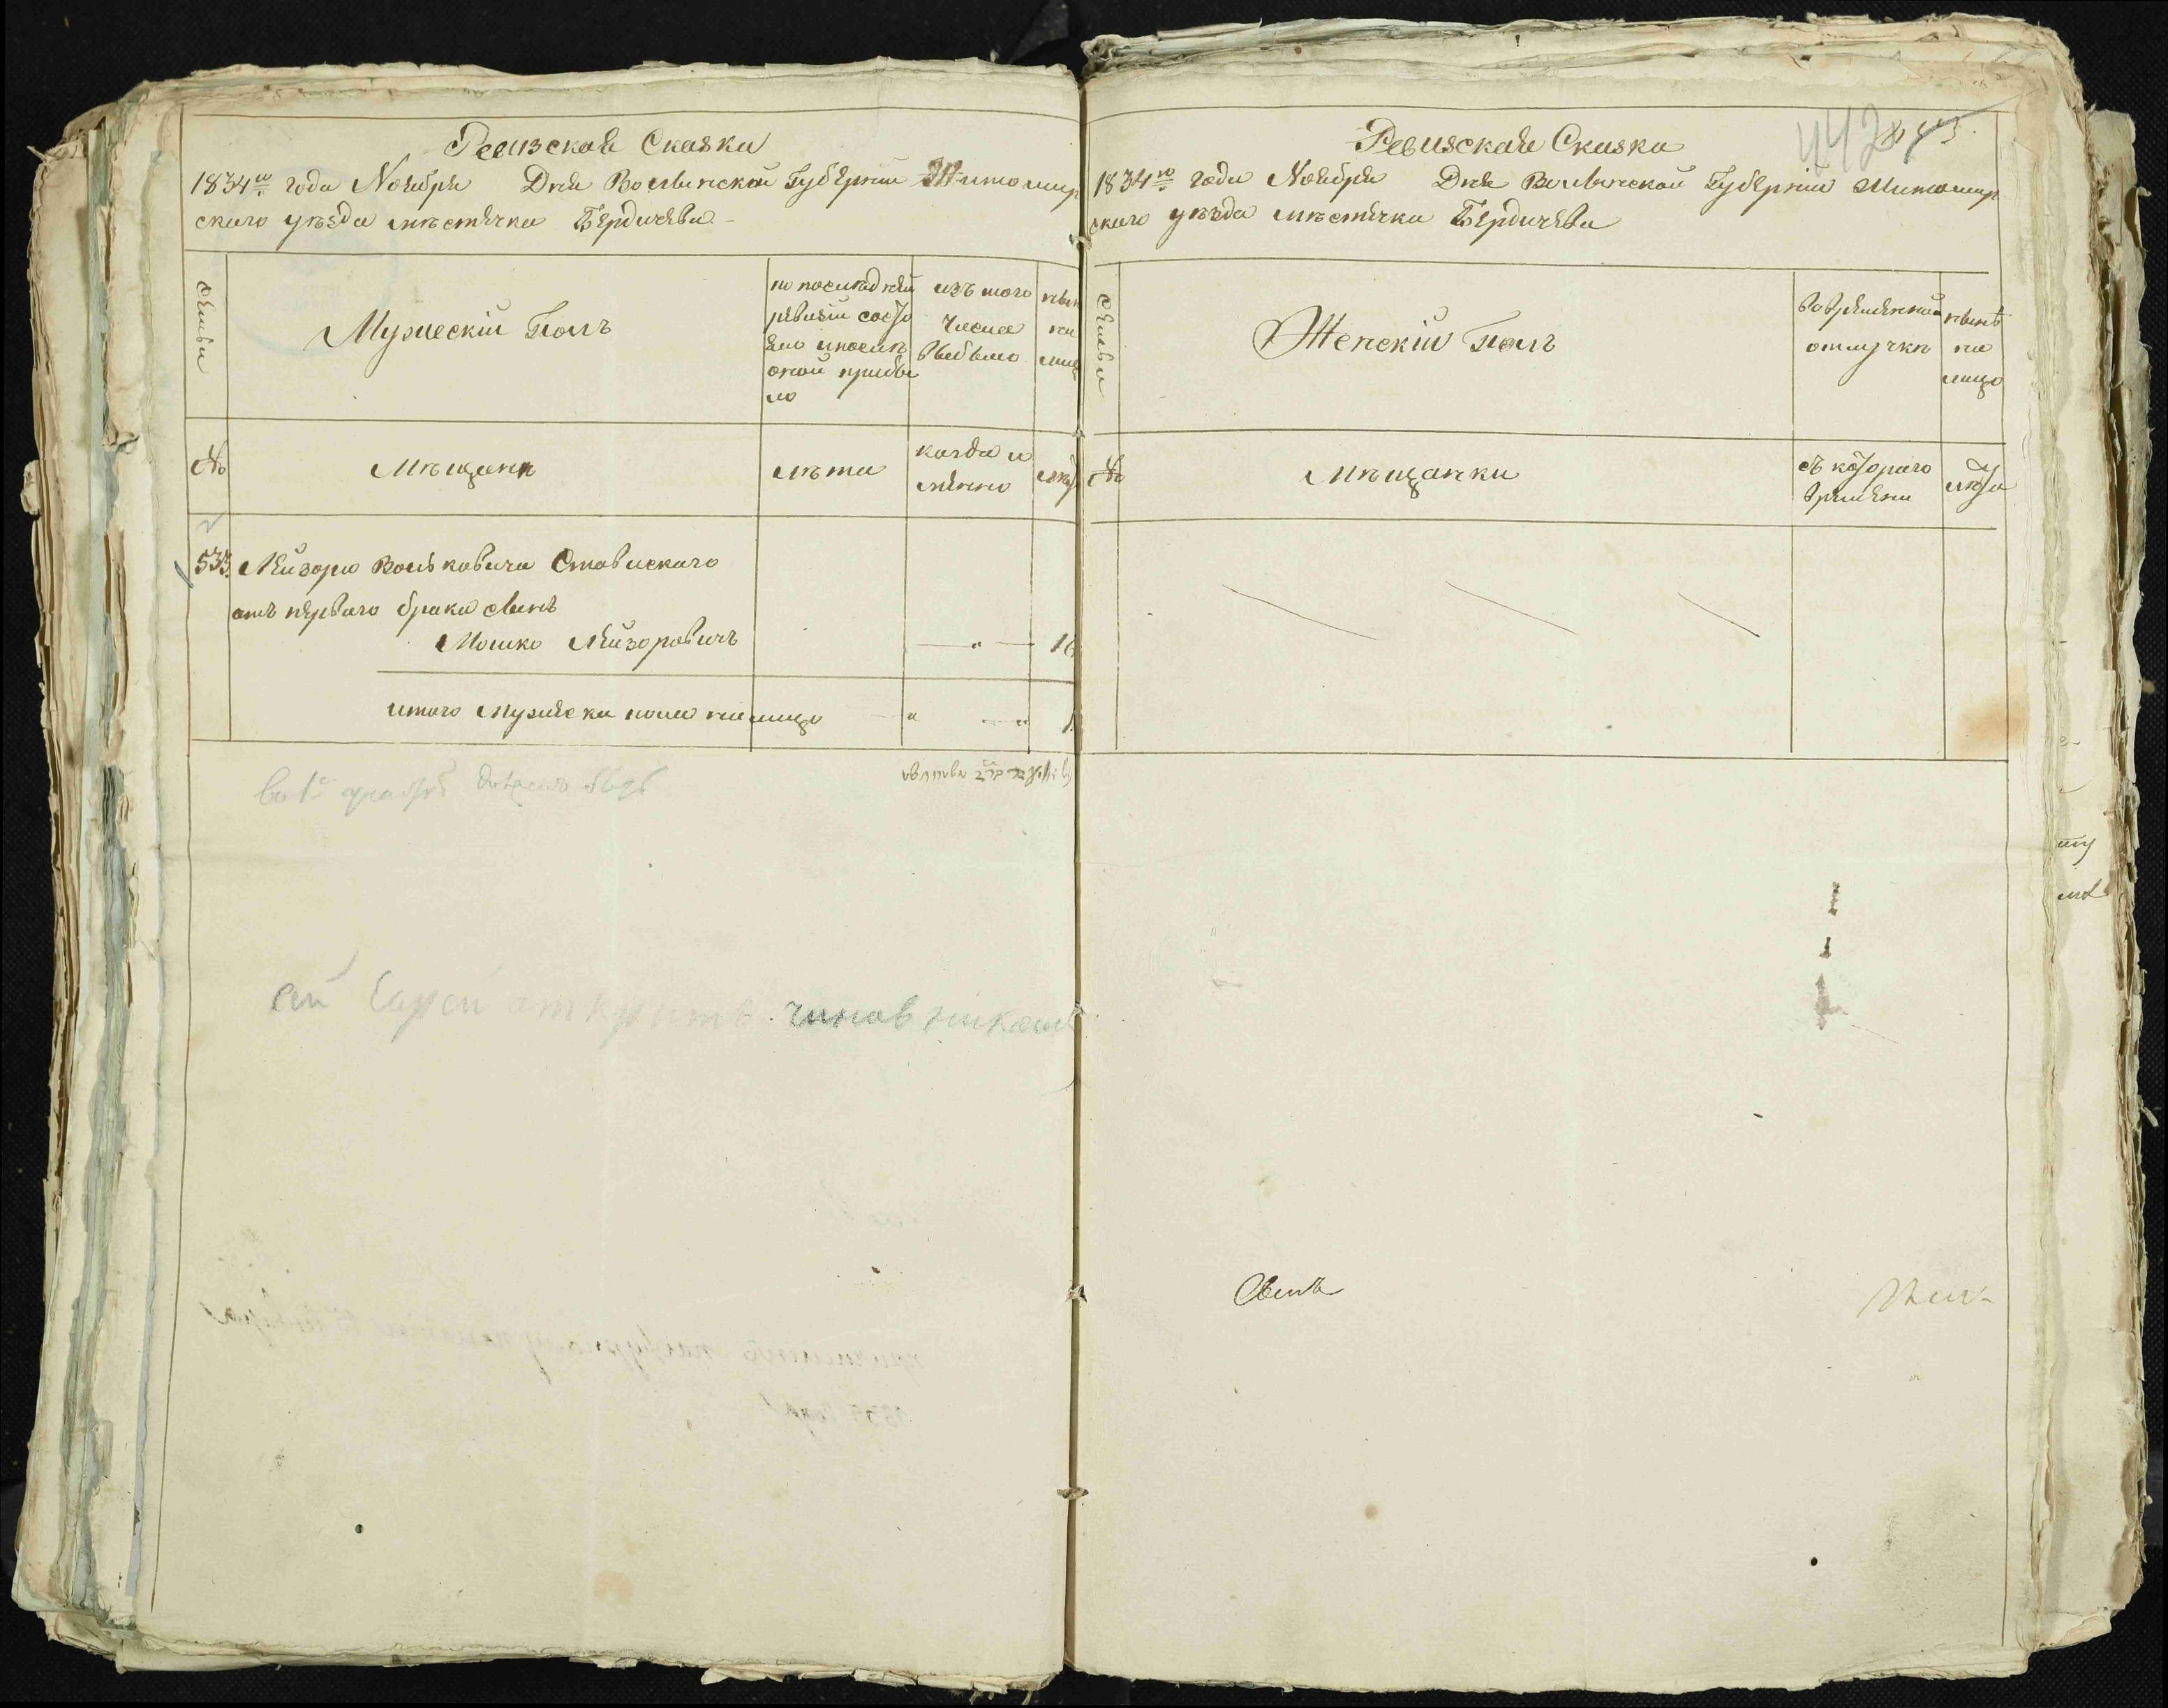 Ревизская Сказка
1834го года Ноября Дня Волынской Губернии Житомир
скаго уезда местечка Бердичева
семьи
Мужескій Полъ
по последней
ревизіи состо
яло и после
оной прибы
ло
изъ того
числа
выбыло
ныне
на
лиц
№
Мещане
лета
когда и
менно
лета
533. Лейзора Волковича Ставискаго
отъ перваго брака сынъ
Мошко Лейзоровичъ — " — 16
итого мужеска пола налицо " " 1
чиновникамъ
Ревизская Сказка
442
1834го года Ноября Дня Волынской Губерніи Житомир
скаго уезда местечка Бердичева
семьи
Женскій Полъ
во временной
отлучке
ныне
на
лицо
№
Мещанки
съ котораго
времени
лета